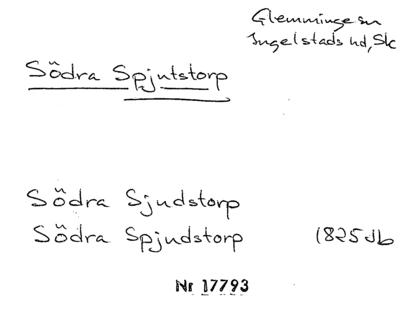 Glemminge sn
Ingelstads hd, Sk
Södra Spjutstorp
Södra Sjudstorp
Södra Spjudstorp 1825 Jb
Nr 17793